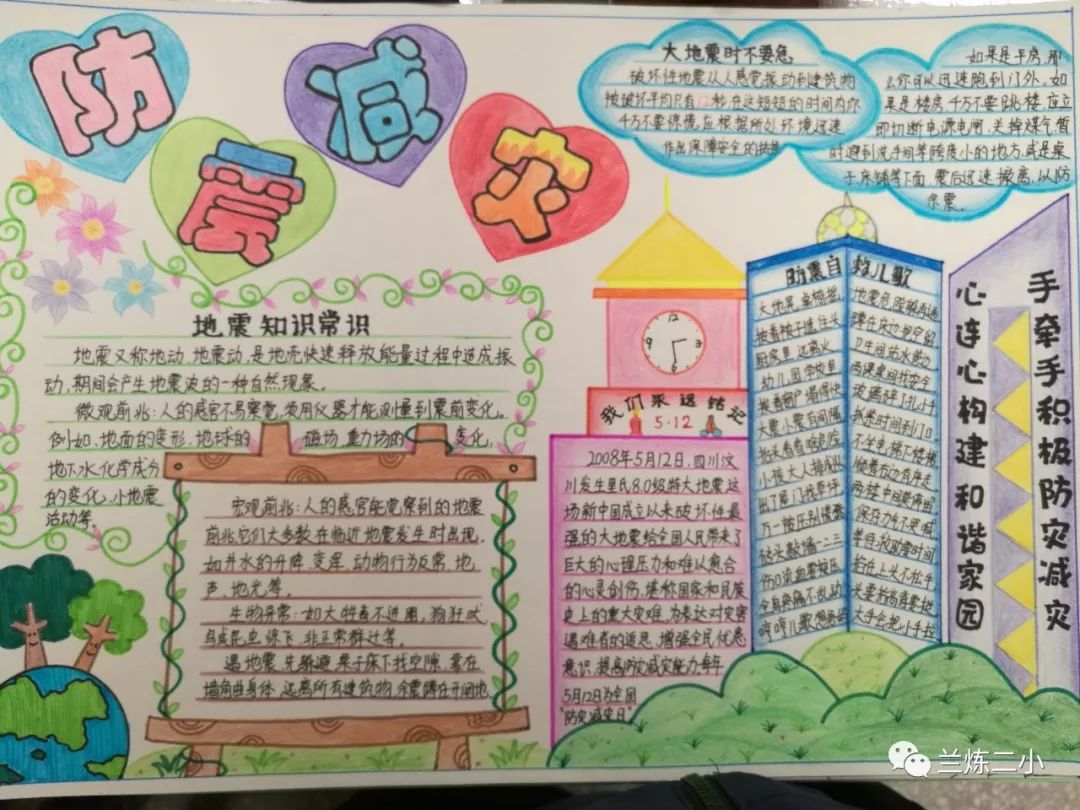 防震减灾
大地震时不要急
破坏性地震从人感觉振动到建筑物
被破坏平均只有12秒,在这短短的时间内你
千万不要惊慌,应根据所处环境迅速
作出保障安全的抉择
如果是平房,那
么你可以迅速跑到门外,如
果是楼房,千万不要跳楼,应立
即切断电源电闸,关掉煤气,暂
时避到洗手间等跨度小的地方,或是桌
子,床铺等下面,震后迅速撤离,以防
余震。
地震知识常识
地震又称地动、地震动,是地壳快速释放能量过程中造成振
动,期间会产生地震波的一种自然现象。
微观前兆:人的感官不易察觉,须用仪器才能测量到震前变化。
例如,地面的变形,地球的磁场,重力场的变化,
地下水化学成分
的变化,小地震
活动等。
宏观前兆:人的感官能觉察到的地震
前兆它们大多数在临近地震发生时出现。
如井水的升降,变浑,动物行为反常,地
声,地光等。
生物异常:如大牲畜不进圈,狗狂吠,
鸟或昆虫惊飞,非正常群迁等。
遇地震,先躲避,桌子床下找空隙,靠在
墙角曲身体,远离所有建筑物,余震蹲在开阔地。
12
3
6
9
我们永远铭记
5·12
2008年5月12日,四川汶
川发生里氏8.0级特大地震这
场新中国成立以来破坏性最
强的大地震给全国人民带来了
巨大的心理压力和难以愈合
的心灵创伤,堪称国家和民族
史上的重大灾难,为表达对灾害
遇难者的追思,增强全民忧患
意识,提高防灾减灾能力,每年
5月12日为全国
"防灾减灾日"
防震自救儿歌
大地晃,桌椅摇,
抱着枕子
厨房里,远离火
幼儿园,学校里
大震小震有间隔
抬头看看啥危险
小孩大人排成
出了屋门找草坪
万一被压别慌张
砖头敲墙一二三
伤口流血要按压
全身疼痛不乱动
哼哼儿歌想爸妈
地震危险
蹲在床边
卫生间
两堵
玻璃碎了扎小手
抓紧时间到门口
不坐电梯下楼梯
顺着右边有序走
两楼中间莫停留
保存力气不哭喊
等待救助
抬在上头不松手
大手会把小手拉
心连心构建和谐家园
手牵手积极防灾减灾
兰炼二小